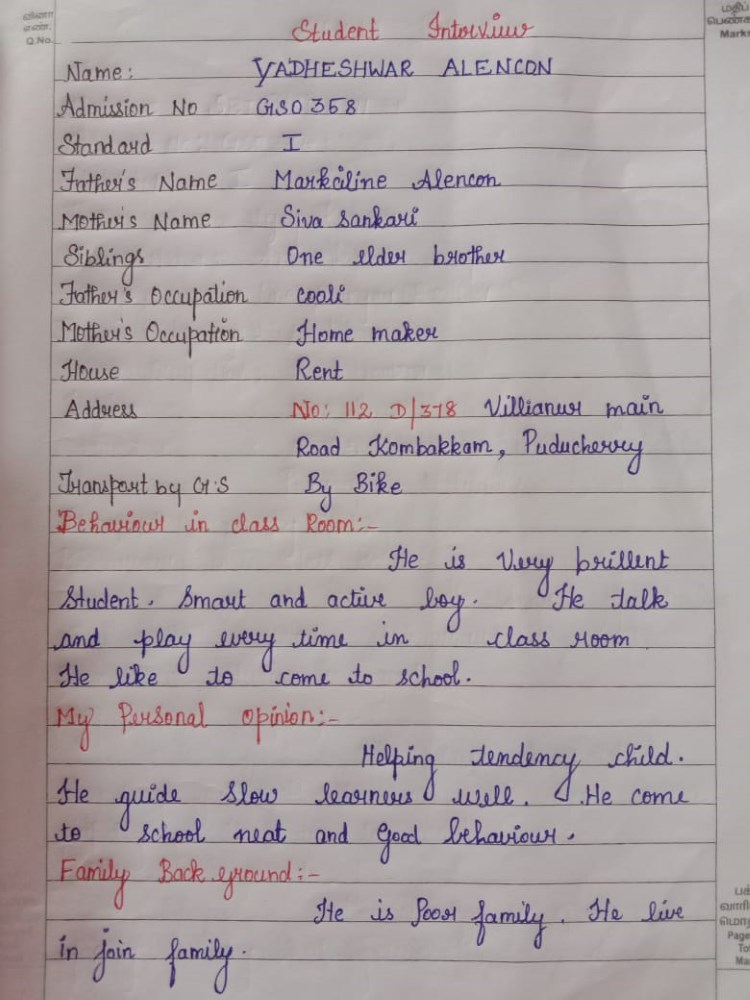 வினா
எண்.
Q.No.
Student Interview
Marks
Name: YADHESHWAR ALENCON
Admission No GSO 358
Standard I
Father's Name Markiline Alencon
Mother's Name Siva Sankari
Siblings One elder brother
Father's Occupation cooli
Mother's Occupation Home maker
House Rent
Address No: 112 D/378 Villianur main
Road Kombakkam, Puducherry
Transport by G.S By Bike
Behaviour in class Room:-
He is Very brillent
Student. Smart and active boy. He talk
and play every time in class room
He like to come to school.
My Personal opinion:-
Helping tendency child.
He guide slow learners well. He come
to school neat and good behaviour.
Family Back ground:-
He is Poor family. He live
in join family.
Page